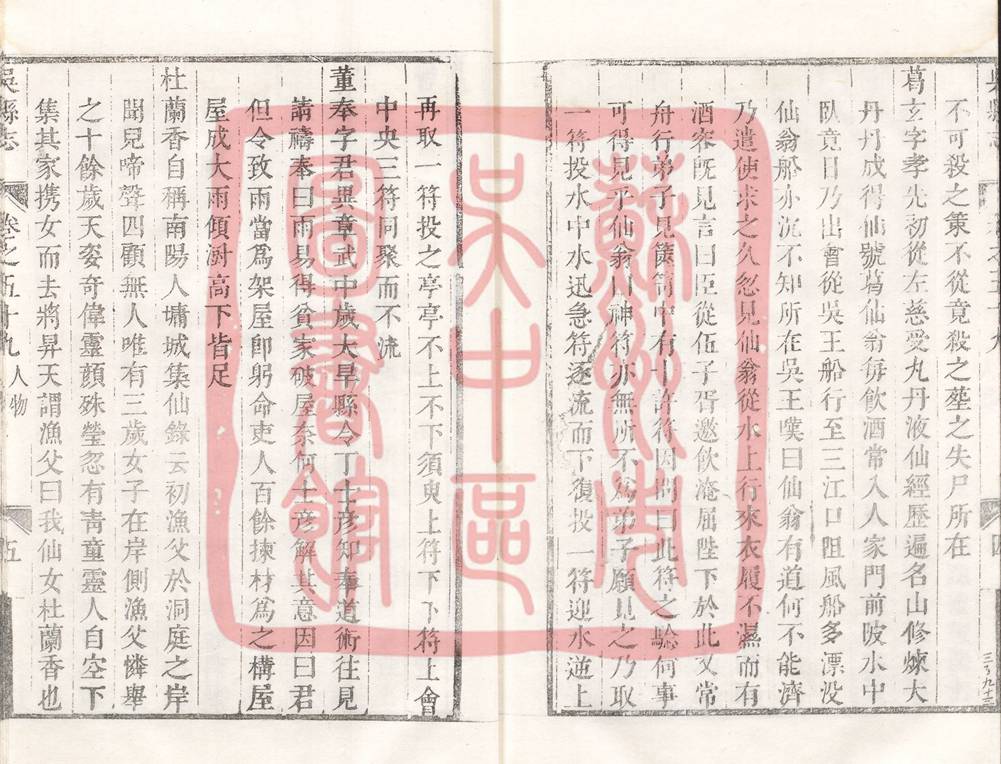 不可殺之策不從竟殺之塟之失尸所在
葛玄字孝先初從左慈受丸丹液仙經歷遍名山修煉大
丹丹成得仙號葛仙翁每飲酒常入人家門前陂水中
臥竟日乃出嘗從吳王船行至三江口阻風船多漂没
仙翁船亦沉不知所在吳王嘆曰仙翁有道何不能濟
乃遣使求之久忽見仙翁從水上行來衣履不濕而有
酒容旣見言曰臣從伍子胥邀飲淹屈陛下於此又常
舟行弟子見篋笥中有十許符因問曰此符之驗何事
可得見乎仙翁曰神符亦無所不爲弟子願見之乃取
一符投水中水迅急符逐流而下復投一符迎水逆上
再取一符投之亭亭不上不下須臾上符下下符上會
中央三符同聚而不流
董奉字君異章武中歲大旱縣令丁士彦知奉道術往見
請禱奉曰雨易得貧家破屋奈何士彦解其意因曰君
但令致雨當爲架屋卽躬命吏人百餘揀材爲之構屋
屋成大雨傾澍高下皆足
杜蘭香自稱南陽人墉城集仙錄云初漁父於洞庭之岸
聞兒啼聲四顧無人唯有三歲女子在岸側漁父憐舉
之十餘歲天姿奇偉靈顔殊瑩忽有靑童靈人自空下
集其家携女而去將昇天謂漁父曰我仙女杜蘭香也
吳縣志
卷之五十九
人物
五
蘇州市
吳中區
圖書館